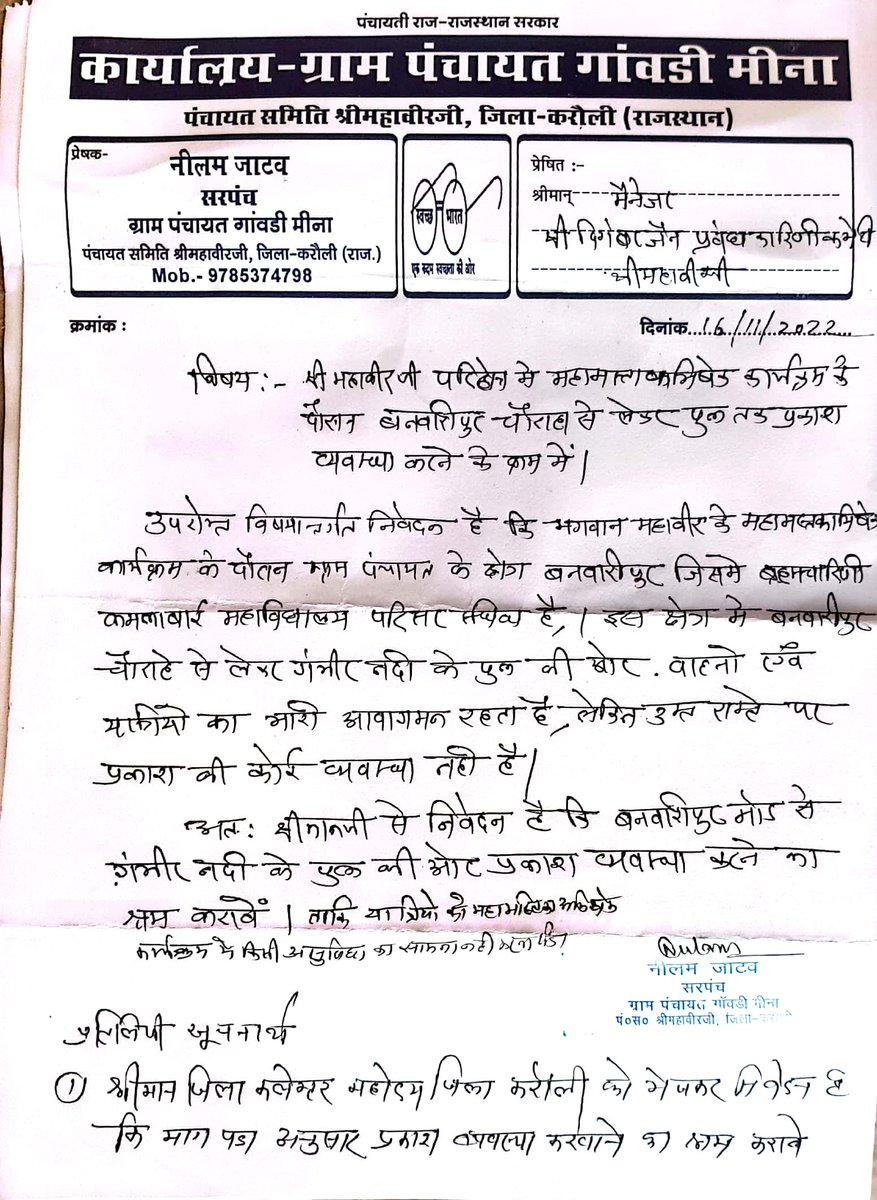 पंचायती राज-राजस्थान सरकार
कार्यालय-ग्राम पंचायत गांवडी मीना
पंचायत समिति श्रीमहावीरजी, जिला-करौली (राजस्थान)
प्रेषक-
नीलम जाटव
सरपंच
ग्राम पंचायत गांवडी मीना
पंचायत समिति श्रीमहावीरजी, जिला-करौली (राज.)
Mob.- 9785374798
स्वच्छ भारत
एक कदम स्वच्छता की ओर
प्रेषित :-
श्रीमान् मैनेजर
श्री दिगम्बर जैन प्रबंध कारिणी कमेटी
श्रीमहावीरजी
क्रमांक :
दिनांक...16/11/2022...
विषय :- श्री महावीर जी परिक्षेत्र मे महामस्तकाभिषेक कार्यक्रम के
दौरान बनवारीपुर चौराहा से लेकर पुल तक प्रकाश
व्यवस्था करने के क्रम में।
उपरोक्त विषयान्तर्गत निवेदन है कि भगवान महावीर के महामस्तकाभिषेक
कार्यक्रम के दौरान ग्राम पंचायत के क्षेत्र बनवारीपुर जिसमे ब्रह्मचारिणी
कमलाबाई महाविद्यालय परिसर स्थित है,। इस क्षेत्र मे बनवारीपुर
चौराहे से लेकर गंभीर नदी के पुल की ओर. वाहनो एवं
यात्रीयो का भारी आवागमन रहता है, लेकिन उक्त रास्ते पर
प्रकाश की कोई व्यवस्था नही है।
अतः श्रीमानजी से निवेदन है कि बनवारीपुर मोड से
गंभीर नदी के पुल की ओर प्रकाश व्यवस्था करने का
श्रम करावें। ताकि यात्रियो को महामस्तिकाभिषेक
कार्यक्रम मे किसी असुविधा का सामना नही करना पडे।
Nulam
नीलम जाटव
सरपंच
ग्राम पंचायत गॉवडी मीना
पं०स० श्रीमहावीरजी, जिला-करौली
प्रतिलिपी सूचनार्थ
① श्रीमान जिला कलेक्टर महोदय जिला करौली को भेजकर निवेदन है
कि मांग पत्र अनुसार प्रकाश व्यवस्था करवाने का श्रम करावे